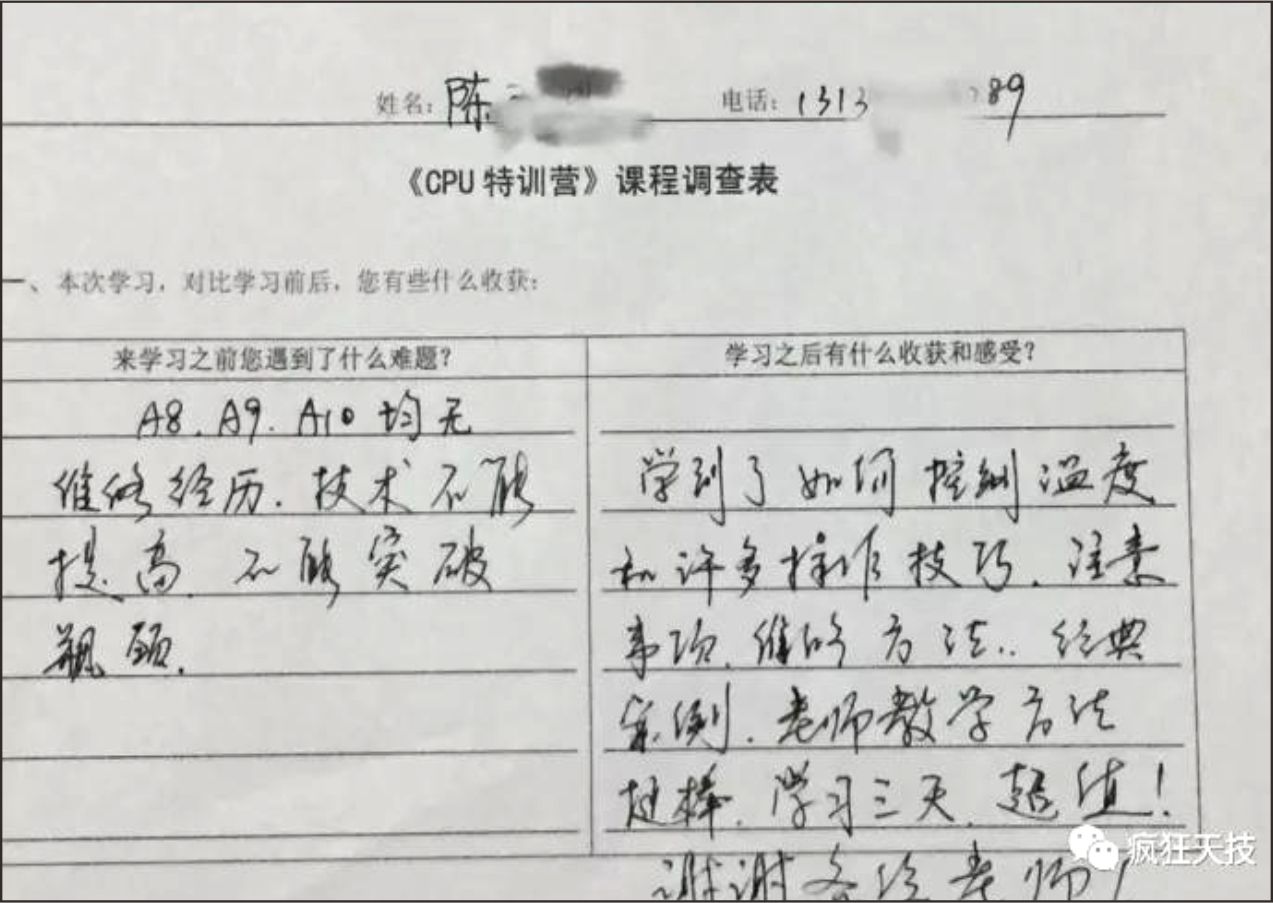 姓名：陈
电话：1313 89
《CPU 特训营》课程调查表
一、本次学习，对比学习前后，您有些什么收获：
来学习之前您遇到了什么难题？
A8、A9、A10 均无
维修经历、技术不能
提高、不能突破
瓶颈.
学习之后有什么收获和感受？
学到了如何控制温度
和许多操作技巧、注意
事项、维修方法.. 经典
案例、老师教学方法
挺棒、学习三天、超值！
谢谢各位老师！
疯狂天技